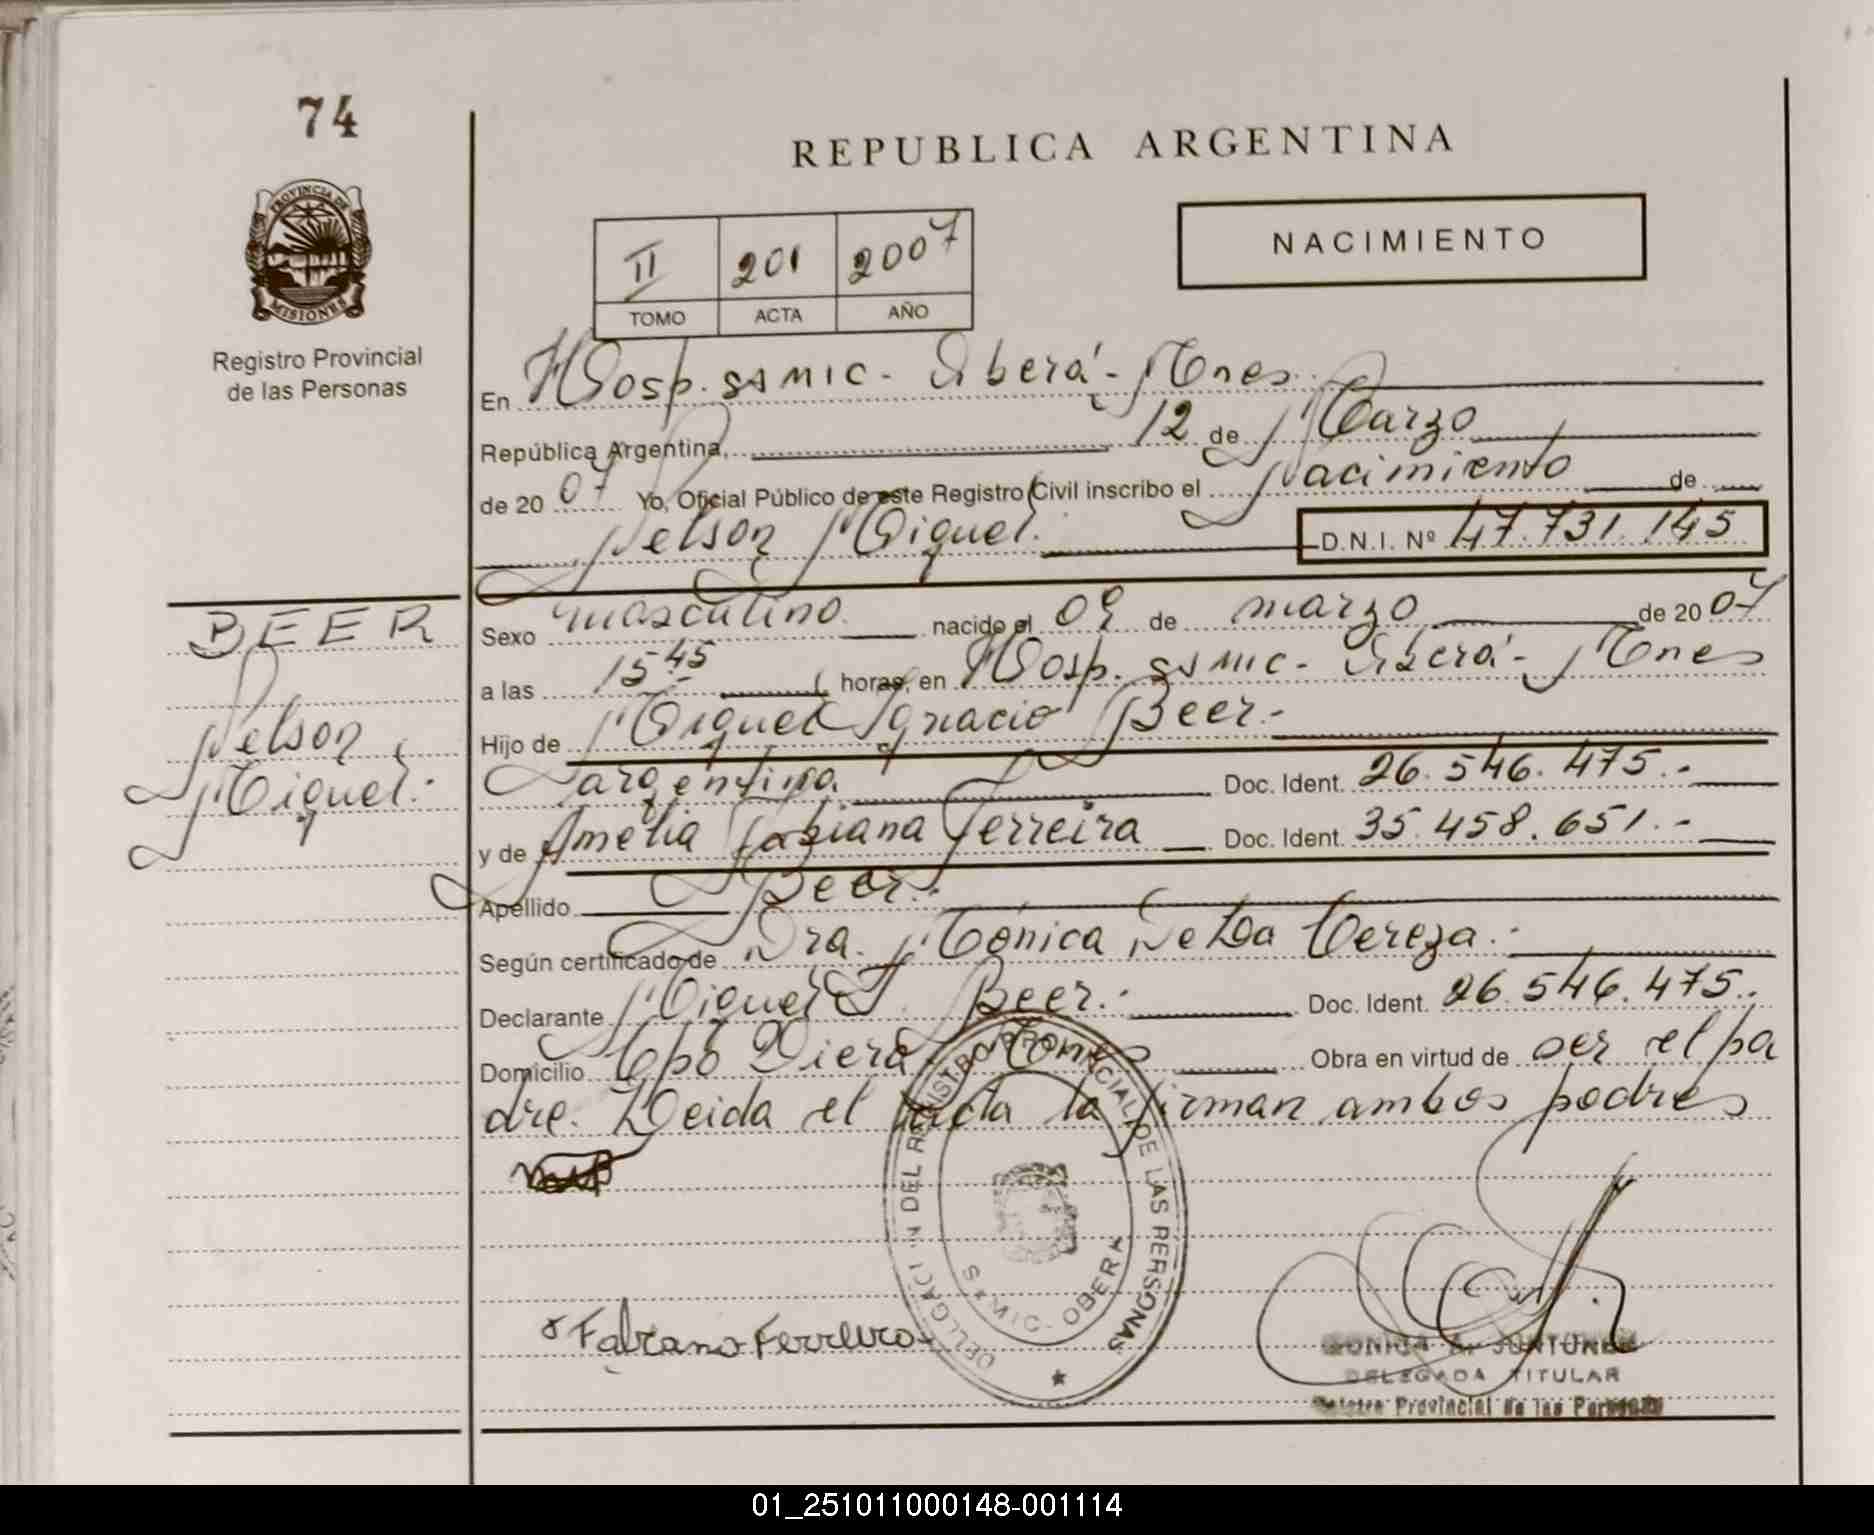 74
REPUBLICA ARGENTINA
PROVINCIA DE
MISIONES
Registro Provincial
de las Personas
II 201 2007
TOMO ACTA AÑO
NACIMIENTO
En Hosp. SAMIC - Oberá - Mnes.
República Argentina, 12 de Marzo
de 2007 Yo, Oficial Público de este Registro Civil inscribo el Nacimiento de
Nelson Miguel. D.N.I. Nº 47.731.145
BEER
Nelson
Miguel.-
Sexo masculino nacido el 09 de marzo de 2007
a las 15 45 horas, en Hosp. SAMIC - Oberá - Mnes
Hijo de Miguel Ignacio Beer.-
argentino. Doc. Ident. 26.546.475.-
y de Amelia Fabiana Ferreira Doc. Ident. 35.458.651.-
Apellido Beer.-
Según certificado de Dra. Mónica De
Declarante Miguel I. Beer.- Doc. Ident. 26.546.475.-
Domicilio Cpo Viera - Mnes Obra en virtud de ser el pa
dre. Leida el acta la firman ambos padres
DEL REGISTRO PROVINCIAL DE LAS PERSONAS
SAMIC - OBERA
Fabiana Ferreira
DELEGADA TITULAR
Registro Provincial de las Personas
01_251011000148-001114